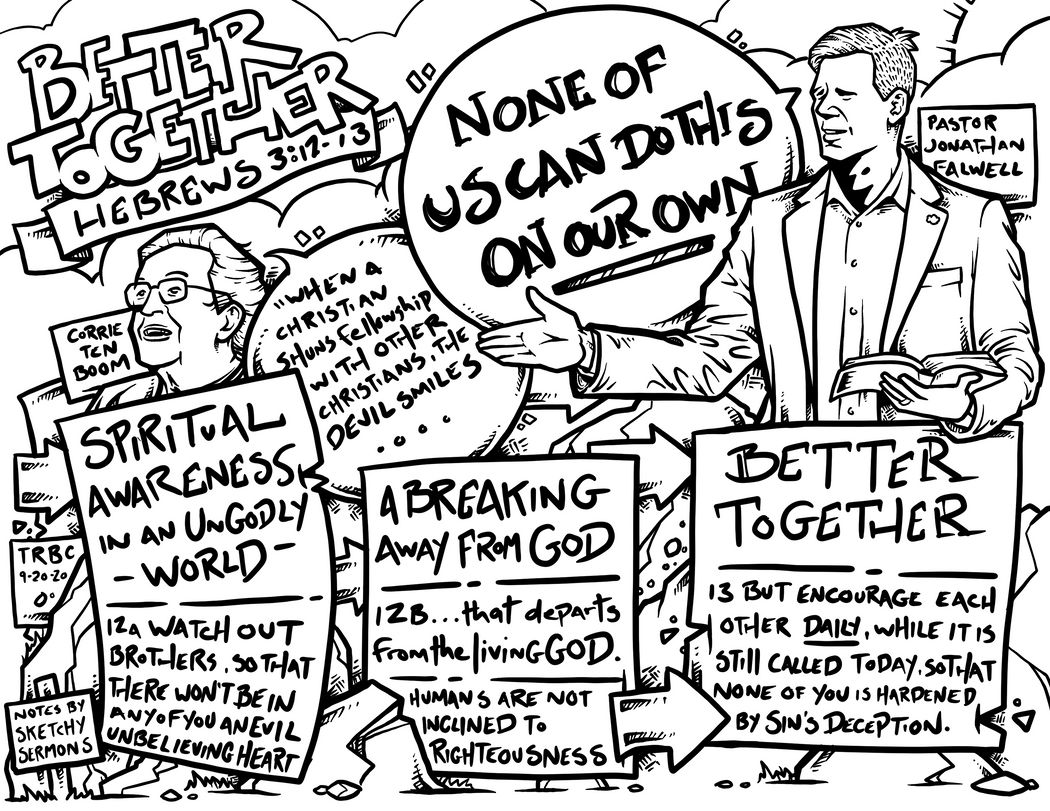 BETTER
TOGETHER
HEBREWS 3:12-13
NONE OF
US CAN DO THIS
ON OUR OWN
PASTOR
JONATHAN
FALWELL
CORRIE
TEN
BOOM
"WHEN A
CHRISTIAN
SHUNS FELLOWSHIP
WITH OTHER
CHRISTIANS, THE
DEVIL SMILES
....
SPIRITUAL
AWARENESS
IN AN UNGODLY
- WORLD -
12A WATCH OUT
BROTHERS, SO THAT
THERE WON'T BE IN
ANY OF YOU AN EVIL
UNBELIEVING HEART
A BREAKING
AWAY FROM GOD
12B...that departs
from the living GOD.
HUMANS ARE NOT
INCLINED TO
RIGHTEOUSNESS
BETTER
TOGETHER
13 BUT ENCOURAGE EACH
OTHER DAILY, WHILE IT IS
STILL CALLED TODAY, SO THAT
NONE OF YOU IS HARDENED
BY SIN'S DECEPTION.
TRBC
9-20-20
NOTES BY
SKETCHY
SERMONS